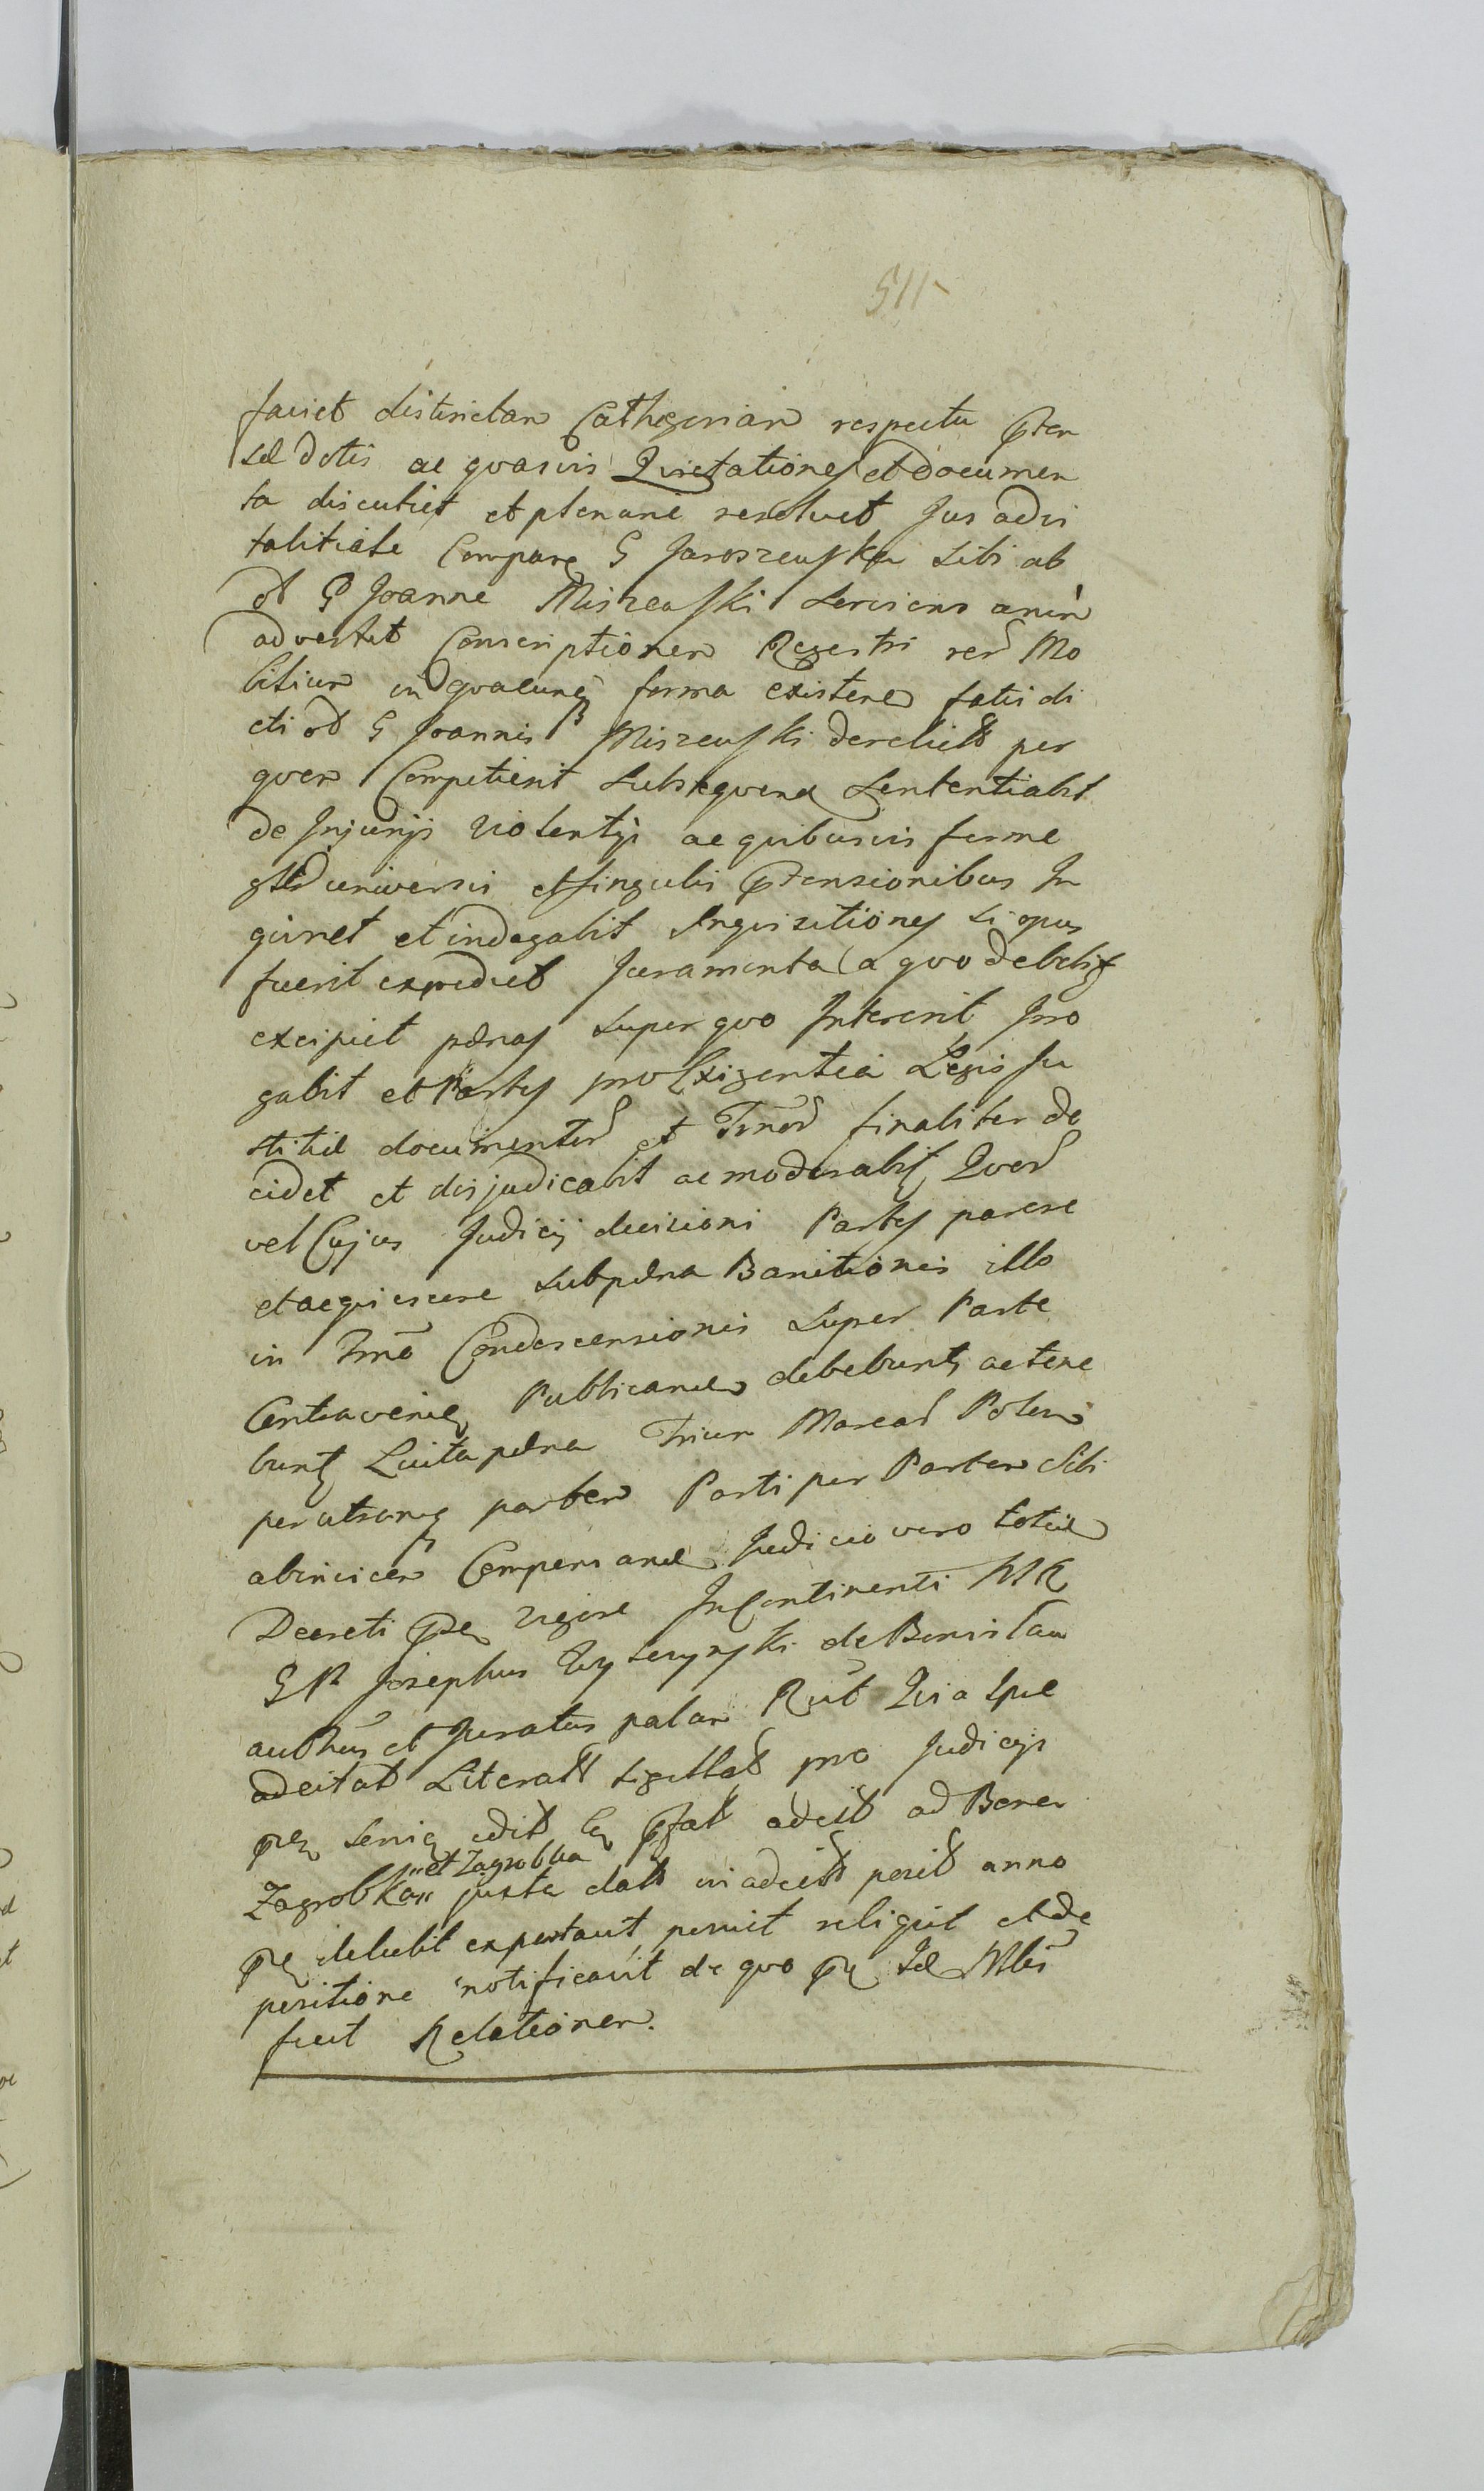 511
faciet districtam Cathegoriam respectu Pten
sæ dotis ac quasvis Quietationes et documen
ta discutiet et plenarie resolvet Jus advi
talitiale Compare G Jaroszewska sibi ab
ol G Joanne Miszewski serviens anim
advertet Conscriptionem Regestri rer Mo
bilium in quacunq forma existen fatis di
cti ol G Joannis Miszewski derelict per
quem Competierit subsequen sententiabit
de Injurijs violentijs ac quibusvis ferme
gnld universis et singulis Ptensionibus In
quiret et indagabit Inquisitiones si opus
fuerit expediet Juramenta a quo debebit
excipiet pænas super quo Intererit Irro
gabit et Partes pro Exigentia Legis Ju
stitiæ documentor et Tmor finaliter de
cidet et disjudicabit ac moderabit Quor
vel Cujus Judicij decisioni Partes parere
et acquiescere sub pæna Banitionis illo
in Tmo Condescensionis super Parte
Contravenien Publicand debebunt ac tene
bunt Luita pæna Trium Marcar Polon
per utramq partem Parti per Partem sibi
abinvicem Compensand Judicio vero totid
Decreti Pn vigore In Continenti MR
G R Josephus de Borvslau
authus et Juratus palam Rut Quia Ipse
adcitat Literatt sigillat pro Judicijs
edit ad Bona
Zagrobka "et Zagrobka" juxta datt in adcitt posit anno
Pn debebit expectavit posuit reliquit et de
positione notificavit de quo Pn Mltr
fecit Relationem.